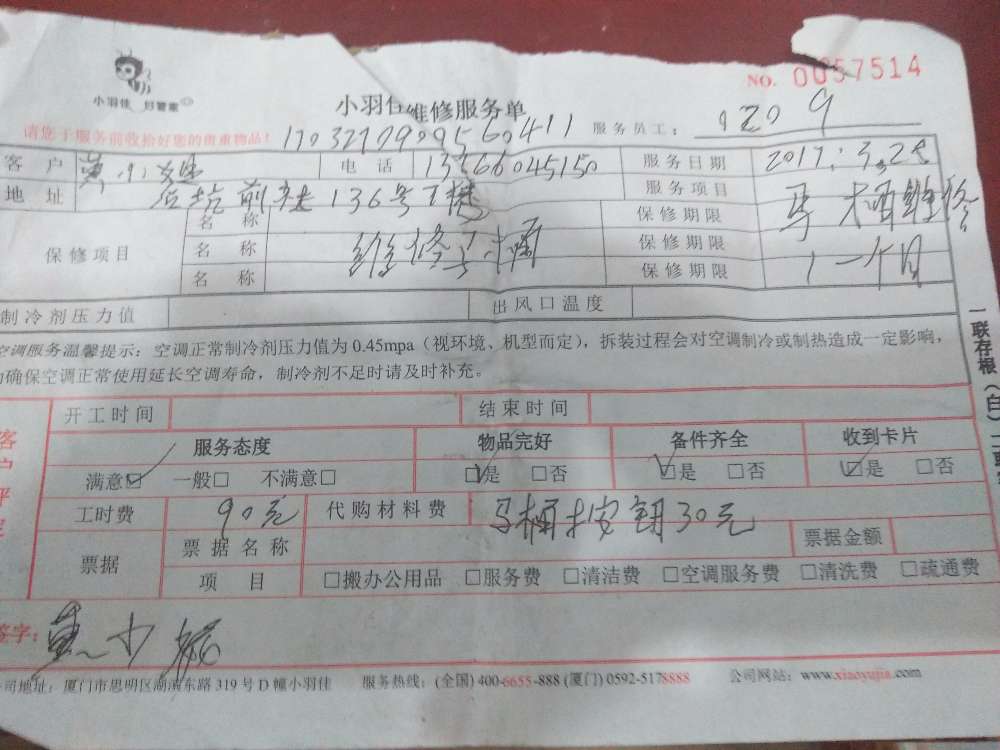 小羽佳 好管家
NO. 0057514
小羽佳维修服务单
请您于服务前收拾好您的贵重物品! 1703217909560411 服务员工: 1209
客户 黄小姐 电话 服务日期 2017.3.25
地址 后坑前社136号 服务项目 马桶维修
保修项目 名称 保修期限
名称 维修马桶 保修期限
名称 保修期限 1一个月
制冷剂压力值 出风口温度
空调服务温馨提示:空调正常制冷剂压力值为0.45mpa(视环境、机型而定),拆装过程会对空调制冷或制热造成一定影响,
为确保空调正常使用延长空调寿命,制冷剂不足时请及时补充。
开工时间 结束时间
客户评定 服务态度 物品完好 备件齐全 收到卡片
满意☑ 一般□ 不满意□ ☑是 □否 ☑是 □否 ☑是 □否
工时费 90元 代购材料费 马桶按钮30元
票据 票据名称 票据金额
项目 □搬办公用品 □服务费 □清洁费 □空调服务费 □清洗费 □疏通费
签字:
公司地址:厦门市思明区湖滨东路319号D幢小羽佳 服务热线:(全国)400-6655-888(厦门)0592-5178888 公司网站:www.xiaoyujia.com
一联存根(白)二联